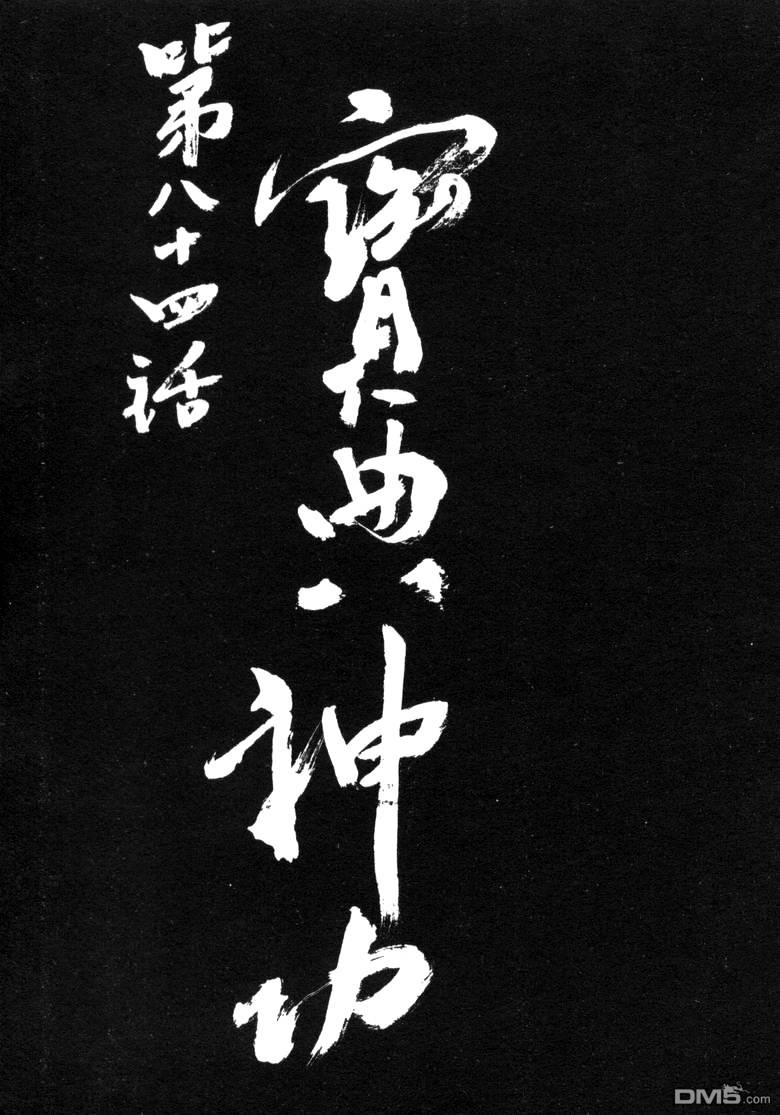 寶典神功
第八十四話
DM5.com